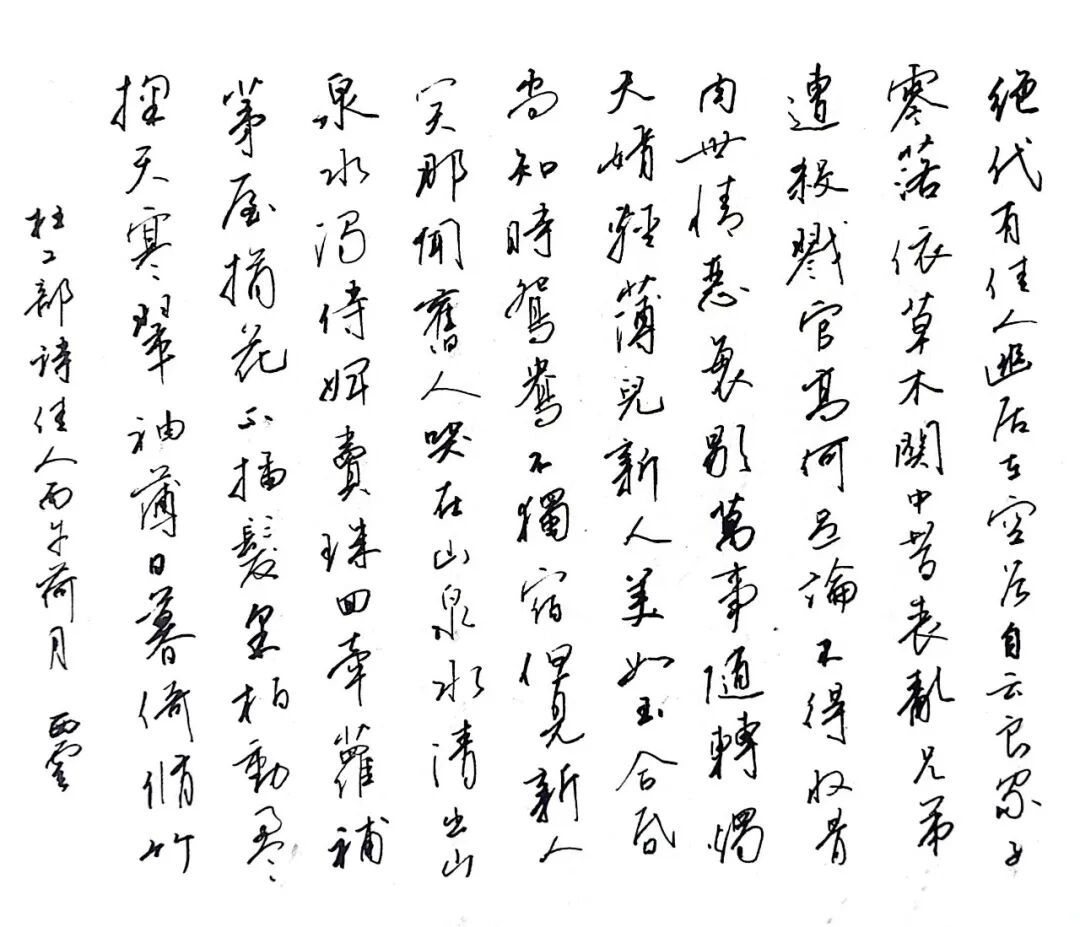 絶代有佳人幽居在空谷自云良家子
零落依草木関中昔丧亂兄弟
遭殺戮官髙何足論不得收骨
肉世情惡衰歇萬事隨轉燭
夫婿輕薄兒新人美如玉合昏
尚知時鴛鴦不獨宿但見新人
笑那聞舊人哭在山泉水清出山
泉水濁侍婢賣珠回牽蘿補
茅屋摘花不插髮采柏動盈
掬天寒翠袖薄日暮倚脩竹
杜工部詩佳人丙午荷月 西雲